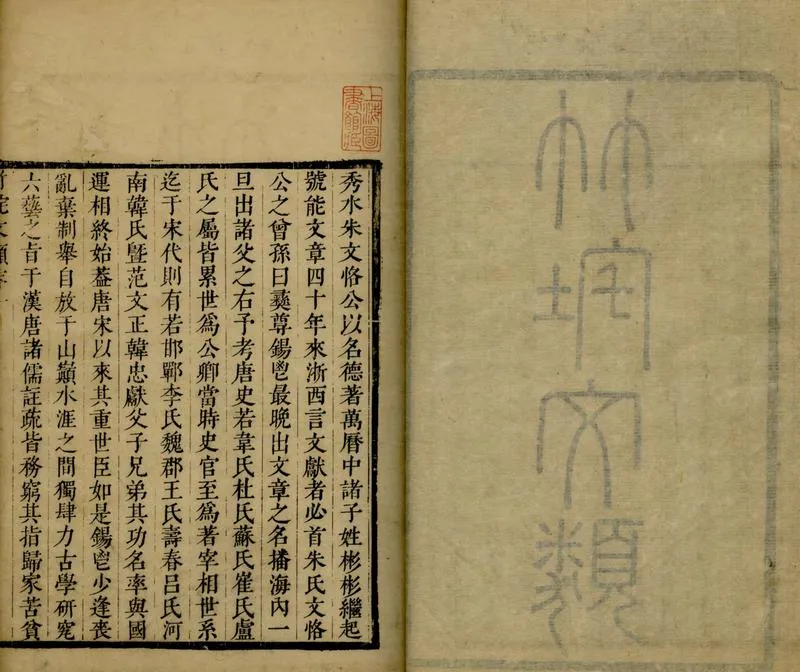 竹垞文類
上海圖
書館藏
秀水朱文恪公以名德著萬曆中諸子姓彬彬繼起
號能文章四十年來浙西言文獻者必首朱氏文恪
公之曾孫曰彝尊錫鬯最晚出文章之名播海內一
旦出諸父之右予考唐史若韋氏杜氏蘇氏崔氏盧
氏之屬皆累世爲公卿當時史官至爲著宰相世系
迄于宋代則有若邯鄲李氏魏郡王氏壽春呂氏河
南韓氏暨范文正韓忠獻父子兄弟其功名率與國
運相終始葢唐宋以來其重世臣如是錫鬯少逢喪
亂棄制舉自放于山巓水涯之間獨肆力古學研究
六藝之旨于漢唐諸儒註疏皆務窮其指歸家苦貧
竹垞文類序